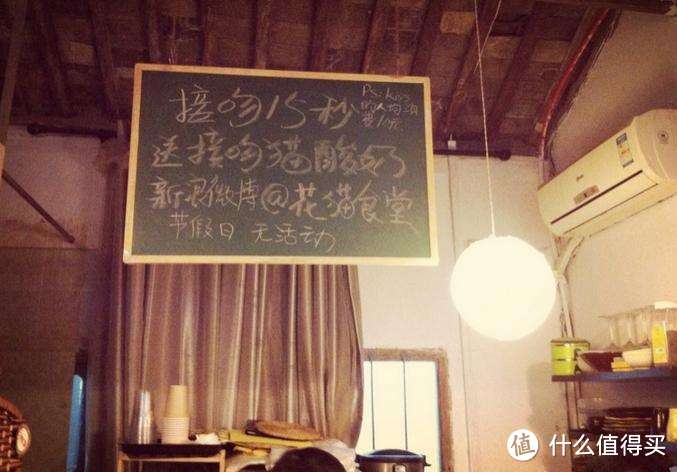 接吻15秒
P.S. kiss
的人均消
费1元
送接吻猫酸奶
新浪微博@花猫食堂
节假日 无活动
值 什么值得买